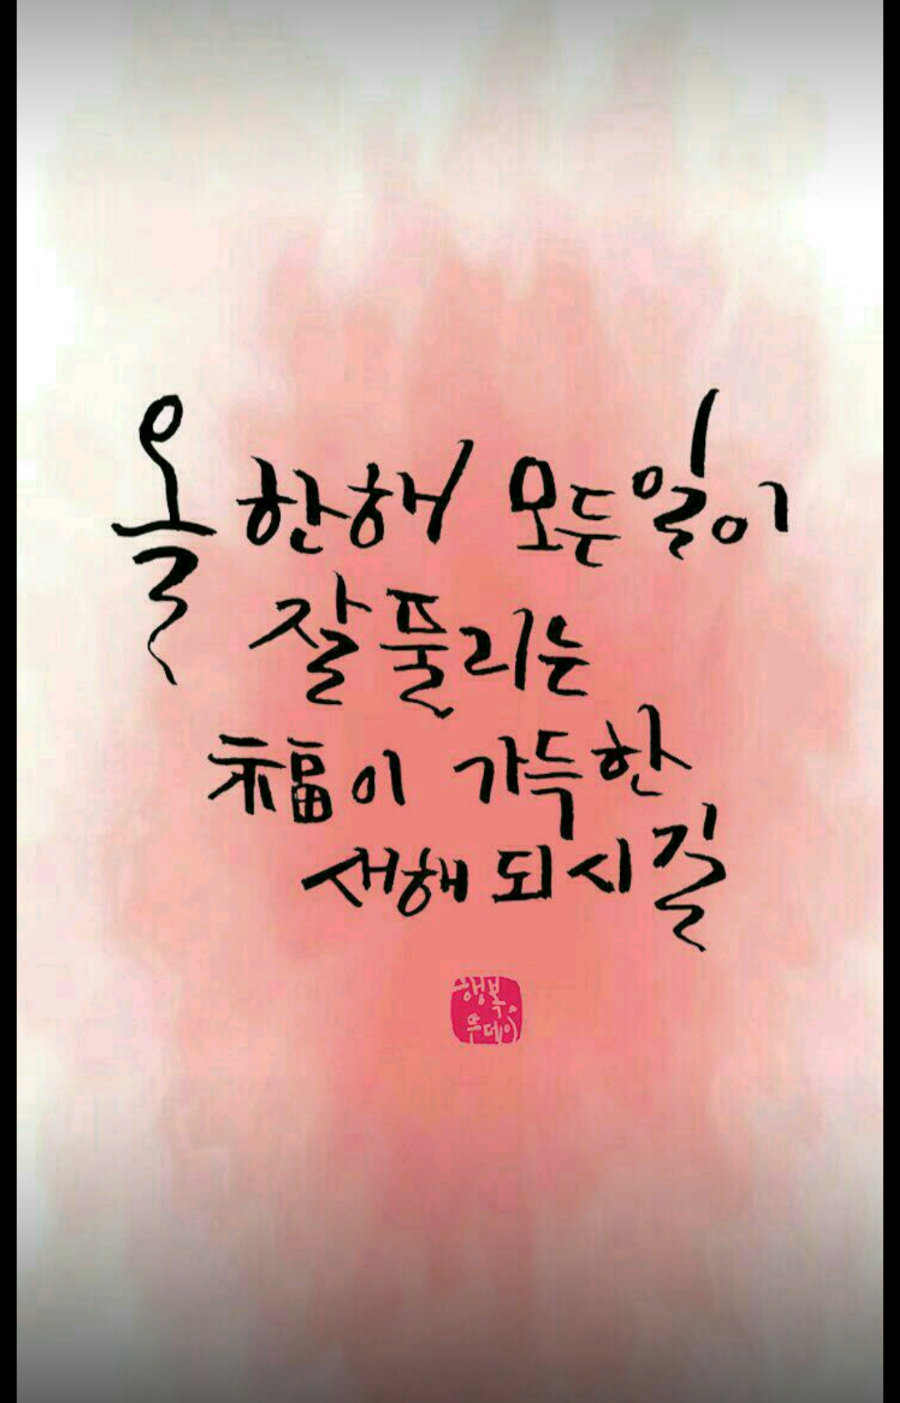 올 한해 모든일이
잘 풀리는
福이 가득한
새해 되시길
행복.